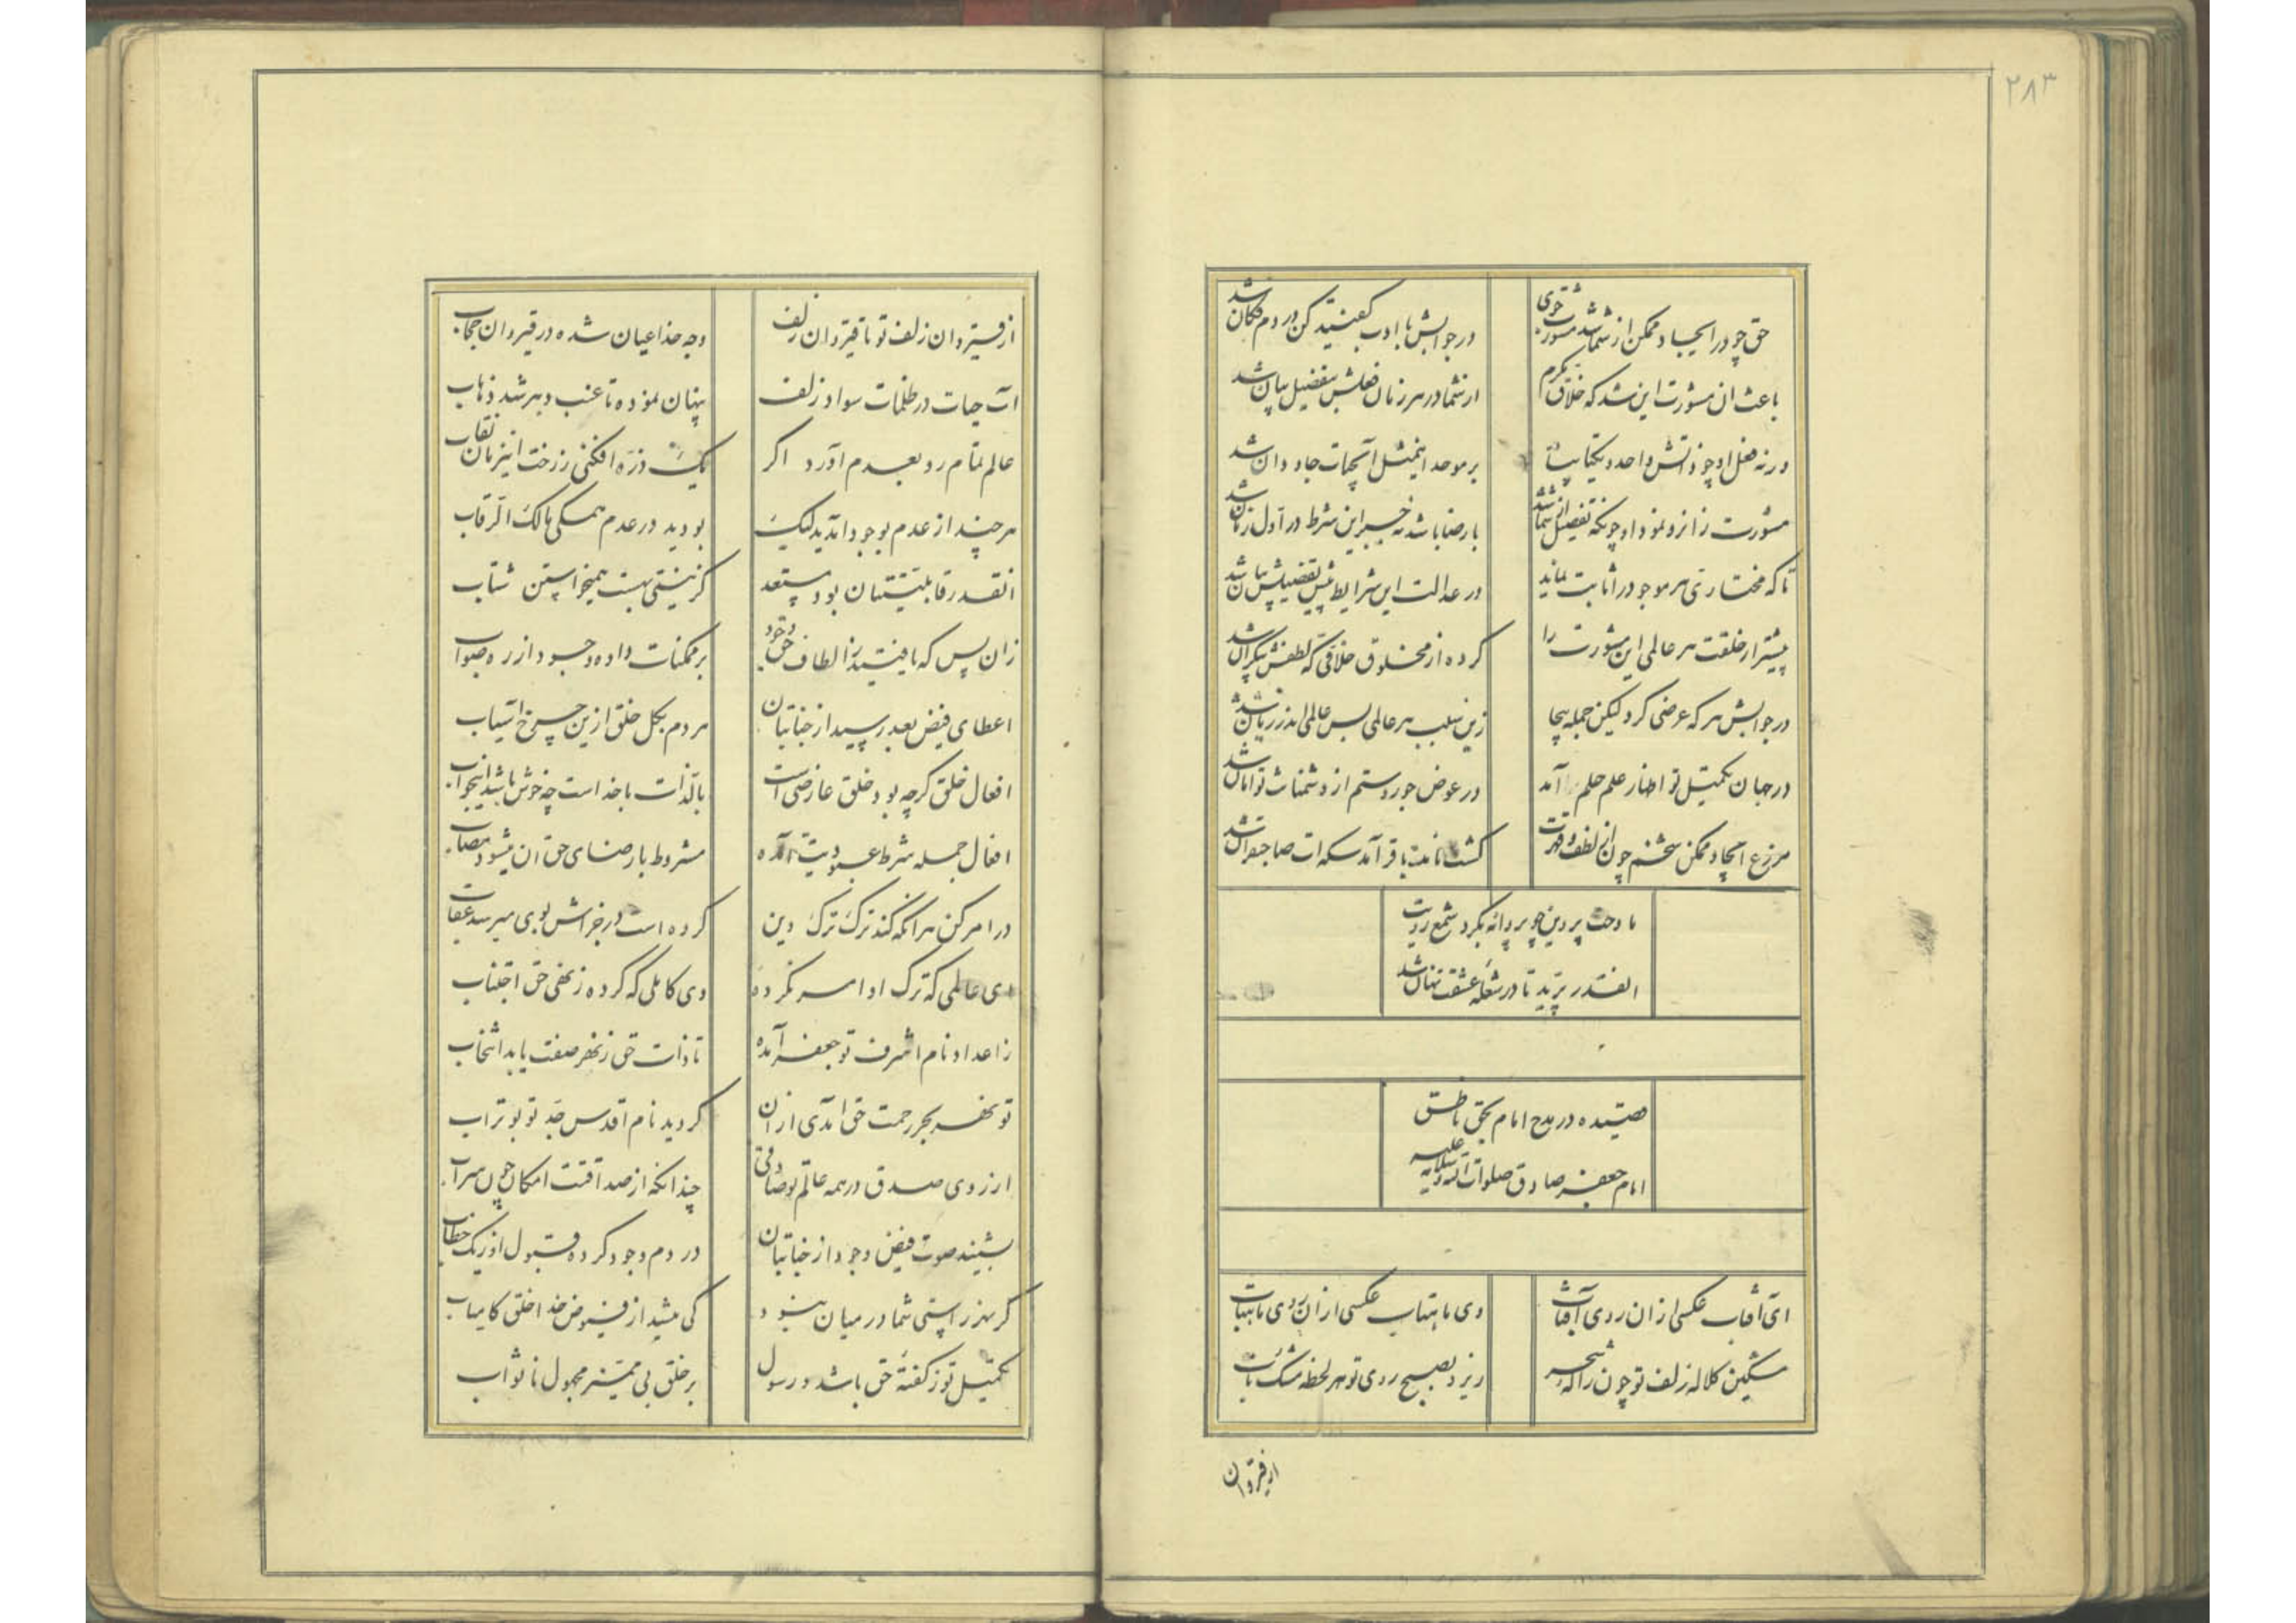 ۲۸۳
حق چو در ایجاد ممکن از شما شد مشورت جوی
در جوابش با ادب گفتید کن در دم فکان شد
باعث ان مشورت این شد که خلاق مکرم
از شما در هر زمان فعلش بتفضیل بیان شد
ورنه فعل او چو ذاتش واحد و یکتاییست
بر موحد اینمثل آبحیات جاودان شد
مشورت زانرو نمود او چونکه تفصیل از شما شد
با رضا باشد نه جبر این شرط در اول زمان شد
تا که مختاری هر موجود را ثابت نماید
در عدالت این شرایط پیش تفضیلش بیان شد
پیشتر از خلقت هر عالمی این مشورت را
کرده از مخلوق خلاقی که لطفش بیکران شد
در جوابش هر که عرضی کرد لیکن جمله بیجا
زین سبب هر عالمی بس عالمی اندر زیان شد
در جهان تکمیل تو اظهار علم حلم آمد
در عوض جور و ستم از دشمنانت تو امان شد
مزرع ایجاد ممکن تخم چون از لطف و قهرت
کشت نامت باقر آمد سکه ات صاحبقران شد
مادحت پروین چو پروانه بگرد شمع رویت
انقدر پرید تا در شعله عشقت نهان شد
قصیده در مدح امام بحق ناطق
امام جعفر صادق صلوات الله و سلامه علیه
ای آفتاب عکسی از ان روی آفتاب
وی ماهتاب عکسی از ان روی ماهتاب
مشکین کلاله زلف تو چون راکه سحر
ریزد بصبح روی تو هر لحظه مشک ناب
از قیروان
از قیروان زلف تو تا قیروان زلف
وجه خدا عیان شده در قیروان حجاب
آب حیات در ظلمات سواد زلف
پنهان نموده تا عنب و بر شد ذهاب
عالم تمام رو بعدم آورد اگر
یک ذره افکنی ز رخت اینزمان نقاب
هر چند از عدم بوجود امدید لیک
بودید در عدم همگی مالک الرقاب
انقدر قابلیتتان بود مستعد
کز نیستی بهست همیخواستن شتاب
زان پس که یافتید ز الطاف حق وجود
بر ممکنات داده وجود از ره صواب
اعطای فیض بعد رسید از جنابتان
هر دم بکل خلق ازین چرخ آسیاب
افعال خلق گرچه بود خلق عارضی است
بالذات با خداست چه خوش باشد اینجواب
افعال جمله شرط عبودیت آمده
مشروط با رضای حق ان میشود مصاب
در امر کن هر انکه کند ترک ترک دین
کرده است در جزاش بوی میرسد عقاب
ای عالمی که ترک اوامر نکرده
وی کاملی که کرده ز نهی حق اجتناب
ز اعداد نام اشرف تو جعفر آمده
تا ذات حق ز نهر صفت یابد انتخاب
تو نهر بحر رحمت حق امدی از ان
گردید نام اقدس جد تو بوتراب
از روی صدق در همه عالم تو صادقی
چندانکه از صداقتت امکان چون سراب
بشنید صوت فیض وجود از جنابتان
در دم وجود کرده قبول از یک خطاب
گر سر ز راستی شما در میان نبود
کی میشد از فیوض خدا خلق کامیاب
تکمیل تو ز گفته حق باشد و رسول
بر خلق بی تمیز مجهول نا ثواب